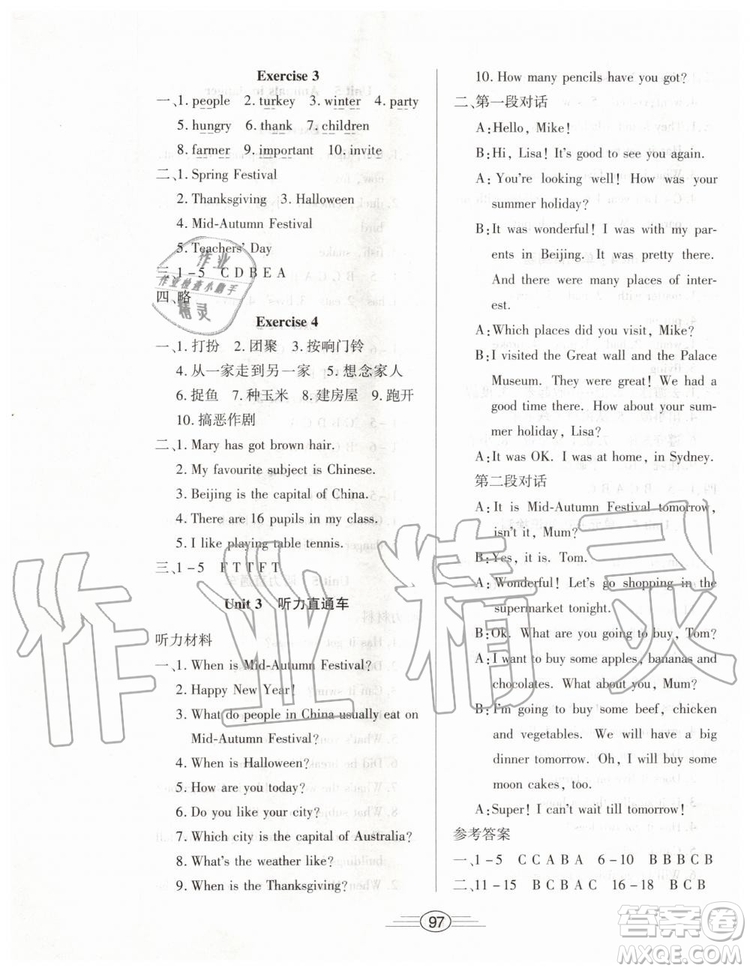 Exercise 3
一、1. people 2. turkey 3. winter 4. party
5. hungry 6. thank 7. children
8. farmer 9. important 10. invite
二、1. Spring Festival
2. Thanksgiving 3. Halloween
4. Mid-Autumn Festival
5. Teachers' Day
三、1-5 C D B E A
四、略
Exercise 4
一、1. 打扮 2. 团聚 3. 按响门铃
4. 从一家走到另一家 5. 想念家人
6. 捉鱼 7. 种玉米 8. 建房屋 9. 跑开
10. 搞恶作剧
二、1. Mary has got brown hair.
2. My favourite subject is Chinese.
3. Beijing is the capital of China.
4. There are 16 pupils in my class.
5. I like playing table tennis.
三、1-5 F T T F T
Unit 3 听力直通车
听力材料
一、1. When is Mid-Autumn Festival?
2. Happy New Year!
3. What do people in China usually eat on
Mid-Autumn Festival?
4. When is Halloween?
5. How are you today?
6. Do you like your city?
7. Which city is the capital of Australia?
8. What's the weather like?
9. When is the Thanksgiving?
10. How many pencils have you got?
二、第一段对话
A: Hello, Mike!
B: Hi, Lisa! It's good to see you again.
A: You're looking well! How was your
summer holiday?
B: It was wonderful. I was with my par-
ents in Beijing. It's a beautiful city.
And there are many places of inter-
est.
A: Which places did you visit, Mike?
B: I visited the Great wall and the Palace
Museum. They were great! We had a
good time. How about your sum-
mer holiday, Lisa?
A: It was OK. I was at home, in Sydney.
第二段对话
A: It is Mid-Autumn Festival tomorrow,
isn't it, Mum?
B: Yes, it is. Tom.
A: Wonderful! Let's go shopping at the
supermarket tonight.
B: Ok. What are you going to buy, Tom?
A: I want to buy some apples, bananas and
chocolates. What about you, Mum?
B: I'm going to buy some beef, chicken
and vegetables. We will have a big
dinner tomorrow. Oh, I will buy some
moon cakes, too.
A: Super! I can't wait till tomorrow!
参考答案
一、1-5 C C A B A 6-10 B B B C B
二、11-15 B C B A C 16-18 B C B
97
作业
作业检查小助手
精灵
作业精灵
答案圈
MXQE.COM